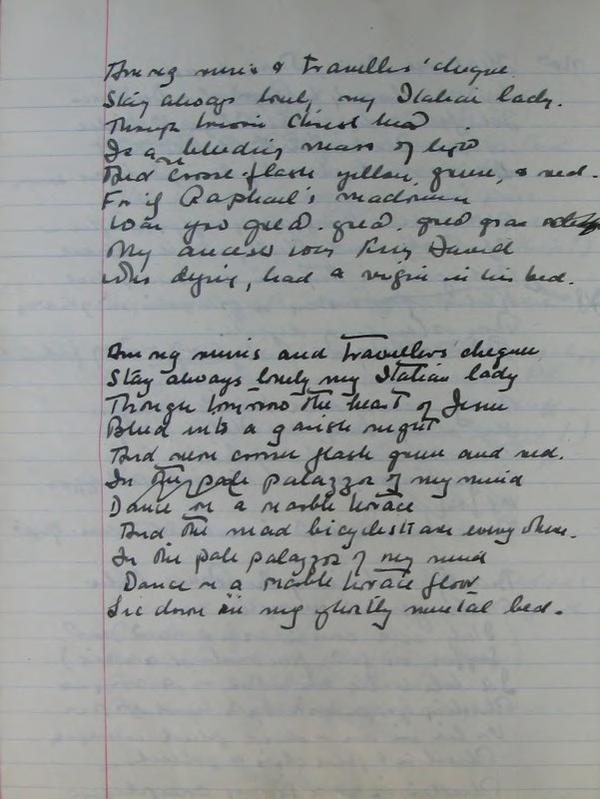 Among ruins & travellers' cheque
Stay always lovely my Italian lady.
Though tomorrow Christ head
Is a bleeding mass of light
And corner flash yellow, green, & red.
For if Raphael's madonna
Was you great. great. great gran
My ancestor was King David
Who dying, had a virgin in his bed.
Among ruins and travellers' cheque
Stay always lovely my Italian lady
Though tomorrow the heart of Jesus
Bleed into a garish night
And neon corner flash green and red.
In the pale palazzo of my mind
Dance on a marble terrace
And the mad bicyclists are everywhere.
In the pale palazzo of my mind
Dance on a marble terrace floor
Lie down in my ghostly mental bed.